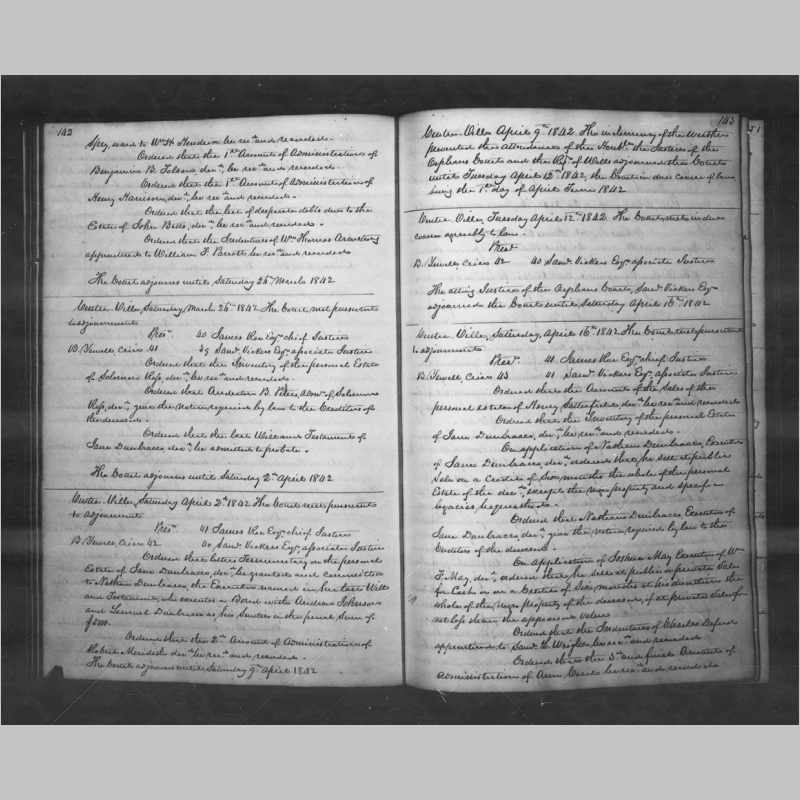 142
Spry, ward to Wm H. Henderson be recd and recorded.
Ordered that the 1st Account of Administration of
Benjamin B. decd, be recd and recorded.
Ordered that the 1st Account of Administration of
Henry Harrison, decd, be recd and recorded.
Ordered that the list of desperate debts due to the
Estate of John decd, be recd and recorded.
Ordered that the Indenture of Wm Thomas Armstrong
apprenticed to William F. be recd and recorded
The Court adjourns until Saturday 26th March 1842
Centre Ville, Saturday, March 26th 1842 The Court met pursuant
to adjournment
Prest 40 James Esqr chief Justice
B. Crier 41 39 Saml Vickers Esqr associate Justice
Ordered that the Inventory of the personal Estate
of Solomon decd, be recd and recorded.
Ordered that B. admr of Solomon
decd, give the notice required by law to the Creditors of
the deceased.
Ordered that the last Will and Testament of
Jane Dunbracco, decd, be admitted to probate.
The Court adjourns until Saturday 2nd April 1842
Centre Ville, Saturday April 2d 1842 The Court met pursuant
to adjournment
Prest 41 James Esqr chief Justice
B. Crier 42 40 Saml Vickers Esqr associate Justice
Ordered that letters Testamentary on the personal
Estate of Jane Dunbracco, decd, be granted and committed
to Nathan Dunbracco the Executor named in her last Will
and Testament, who executes a Bond with Andrew Johnson
and Samuel Dunbracco as his Sureties in the penal Sum of
Ordered that the 2nd Account of Administration of
Robert Meredith decd be recd and recorded.
The Court adjourns until Saturday 9th April 1842
143
Centre Ville April 9th 1842. The inclemency of the weather
prevented the attendance of the Honble the Justices of the
Orphans Court and the Regr of Wills adjourned the Court
until Tuesday April 12th 1842, the Court in due course of law
being the 1st day of April Term 1842
Centre Ville, Tuesday April 12th 1842. The Court meets in due
course agreeably to law.
Prest
B. Crier 42 40 Saml Vickers Esqr associate Justice
The sitting Justice of the Orphans Court, Saml Vickers Esqr
adjourned the Court until Saturday April 16th 1842
Centre Ville, Saturday, April 16th 1842 The Court met pursuant
to adjournment
Prest 41 James Esqr chief Justice
B. Crier 43 41 Saml Vickers Esqr associate Justice
Ordered that the Account of the Sales of the
personal estate of Henry decd, be recd and recorded
Ordered that the Inventory of the personal Estate
of Jane Dunbracco, decd, be recd and recorded.
On application of Nathan Dunbracco, Executor
of Jane Dunbracco, decd, ordered that he sell at public
Sale on a Credit of Six months the whole of the personal
Estate of the decd, except the negro property and specific
legacies
Ordered that Nathan Dunbracco Executor of
Jane Dunbracco, decd, give the notice required by law to the
Creditors of the deceased.
On application of Joshua May Executor of Wm
F. May, decd, ordered that he sell at public or private Sale
for Cash or on a Credit of Six months at his discretion the
whole of the negro property of the deceased, if at private Sale for
not less than the appraised value
Ordered that the Indenture of Charles
apprenticed to Saml T. Wright be recd and recorded
Ordered that the 3d and final Account of
Administration of Ann be recd and recorded